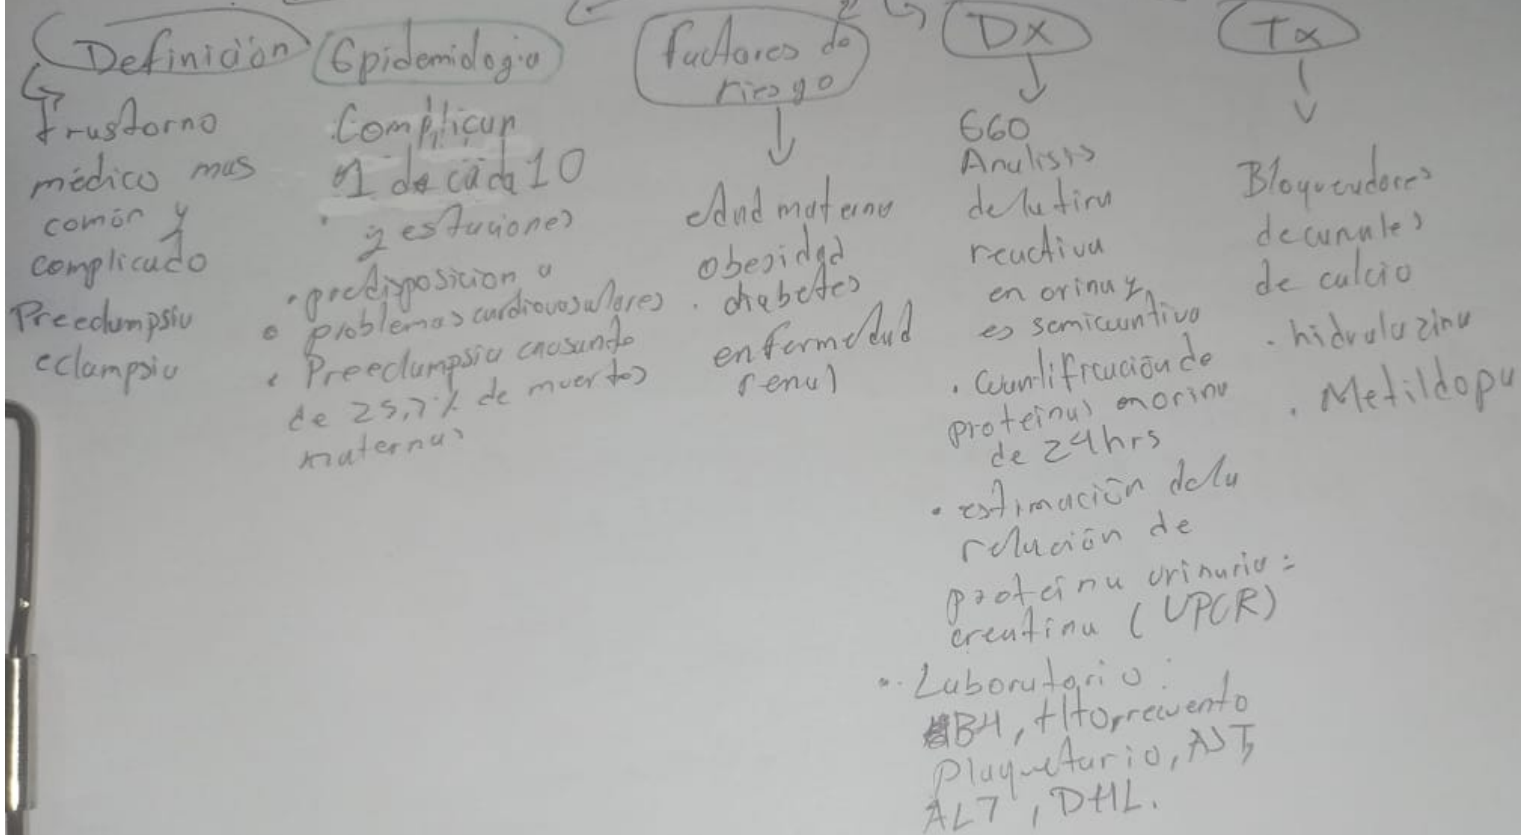 Definición
trastorno
médico mas
común y
complicado
Preeclampsia
eclampsia
Epidemiologia
Complican
1 de cada 10
gestaciones
• predisposicion a
• problemas cardiovasculares
• Preeclampsia causando
de 25,7% de muertes
maternas
factores de
riesgo
edad materna
obesidad
• diabetes
enfermedad
renal
Dx
EGO
Analisis
de la tira
reactiva
en orina y
es semicuantiva
• Cuantificación de
proteinas en orina
de 24hrs
• estimación de la
relación de
proteina urinaria:
creatina (UPCR)
• Laboratorio:
BH, Hto, recuento
plaquetario, AST,
ALT, DHL.
Tx
Bloqueadores
de canales
de calcio
• hidralazina
• Metildopa